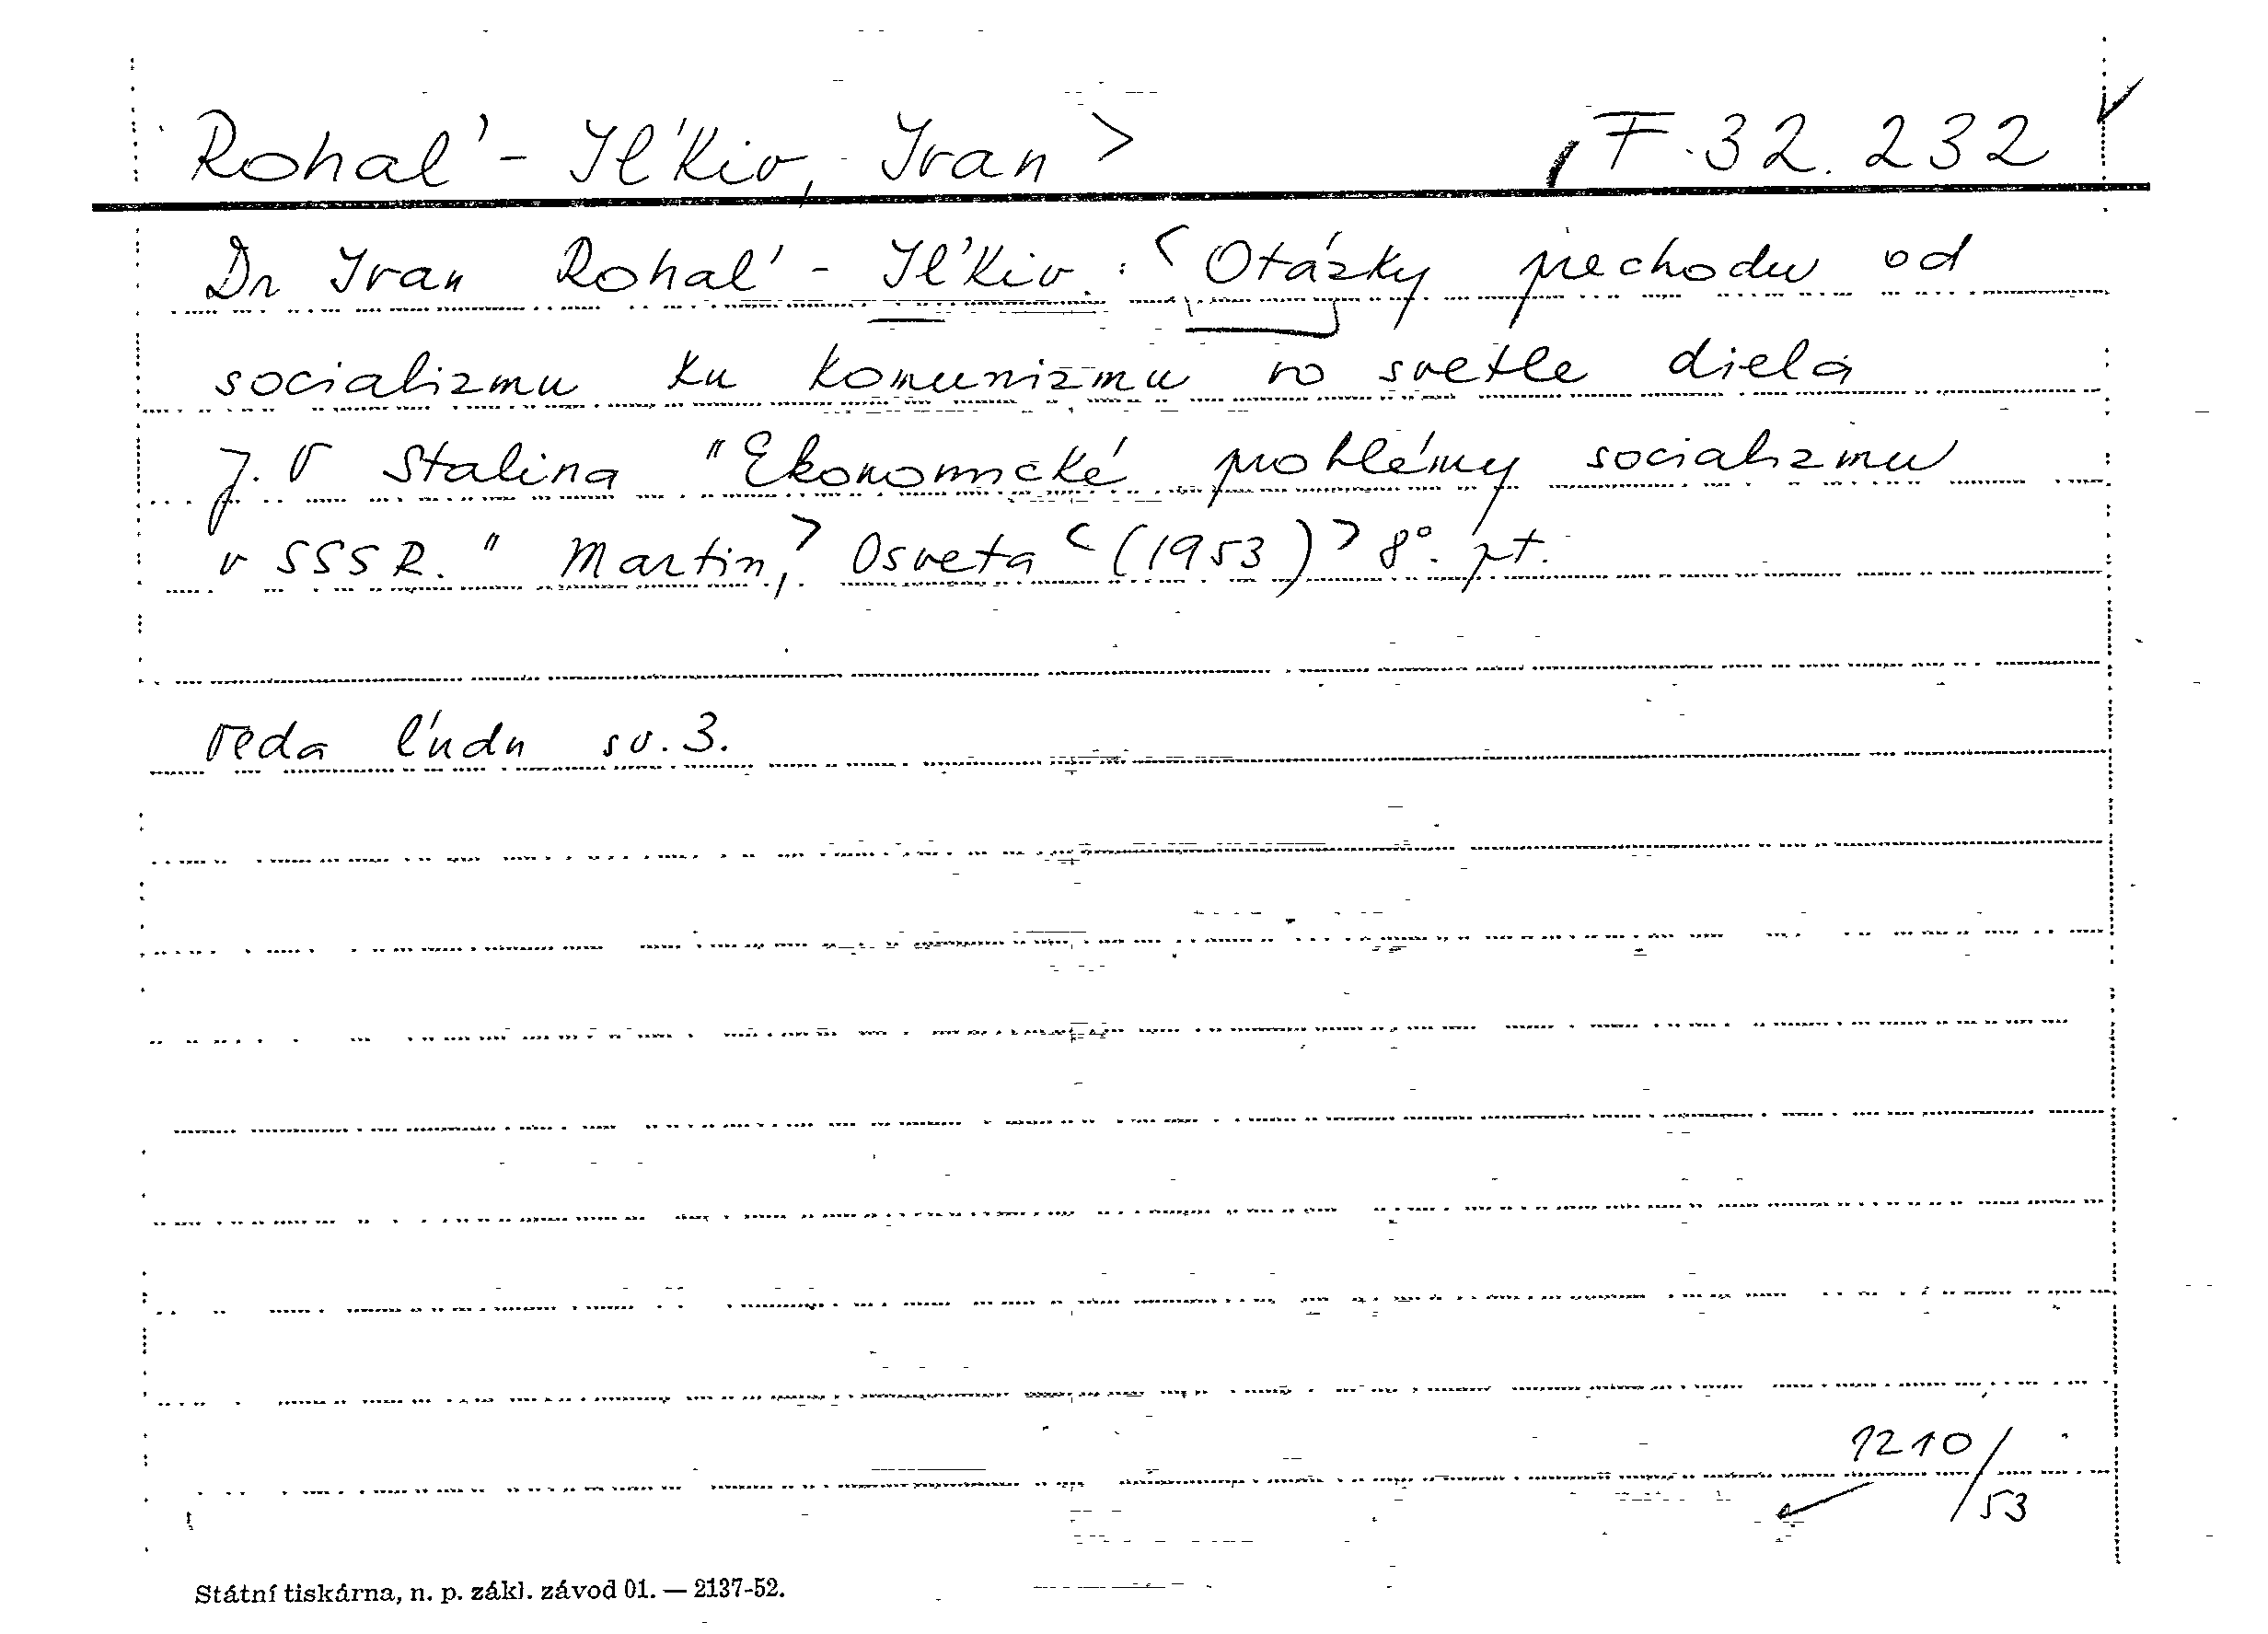 Rohal' - Il'kiv, Ivan > F. 32. 232
Dr Ivan Rohal' - Il'kiv. : < Otázky prechodu od
socializmu ku komunizmu vo svetle diela
J. V Stalina "Ekonomické problémy socializmu
v SSSR." Martin,> Osveta <(1953)> 8°. pt.
veda l'udu sv. 3.
1210/53
Státní tiskárna, n. p. zákl. závod 01. — 2137-52.